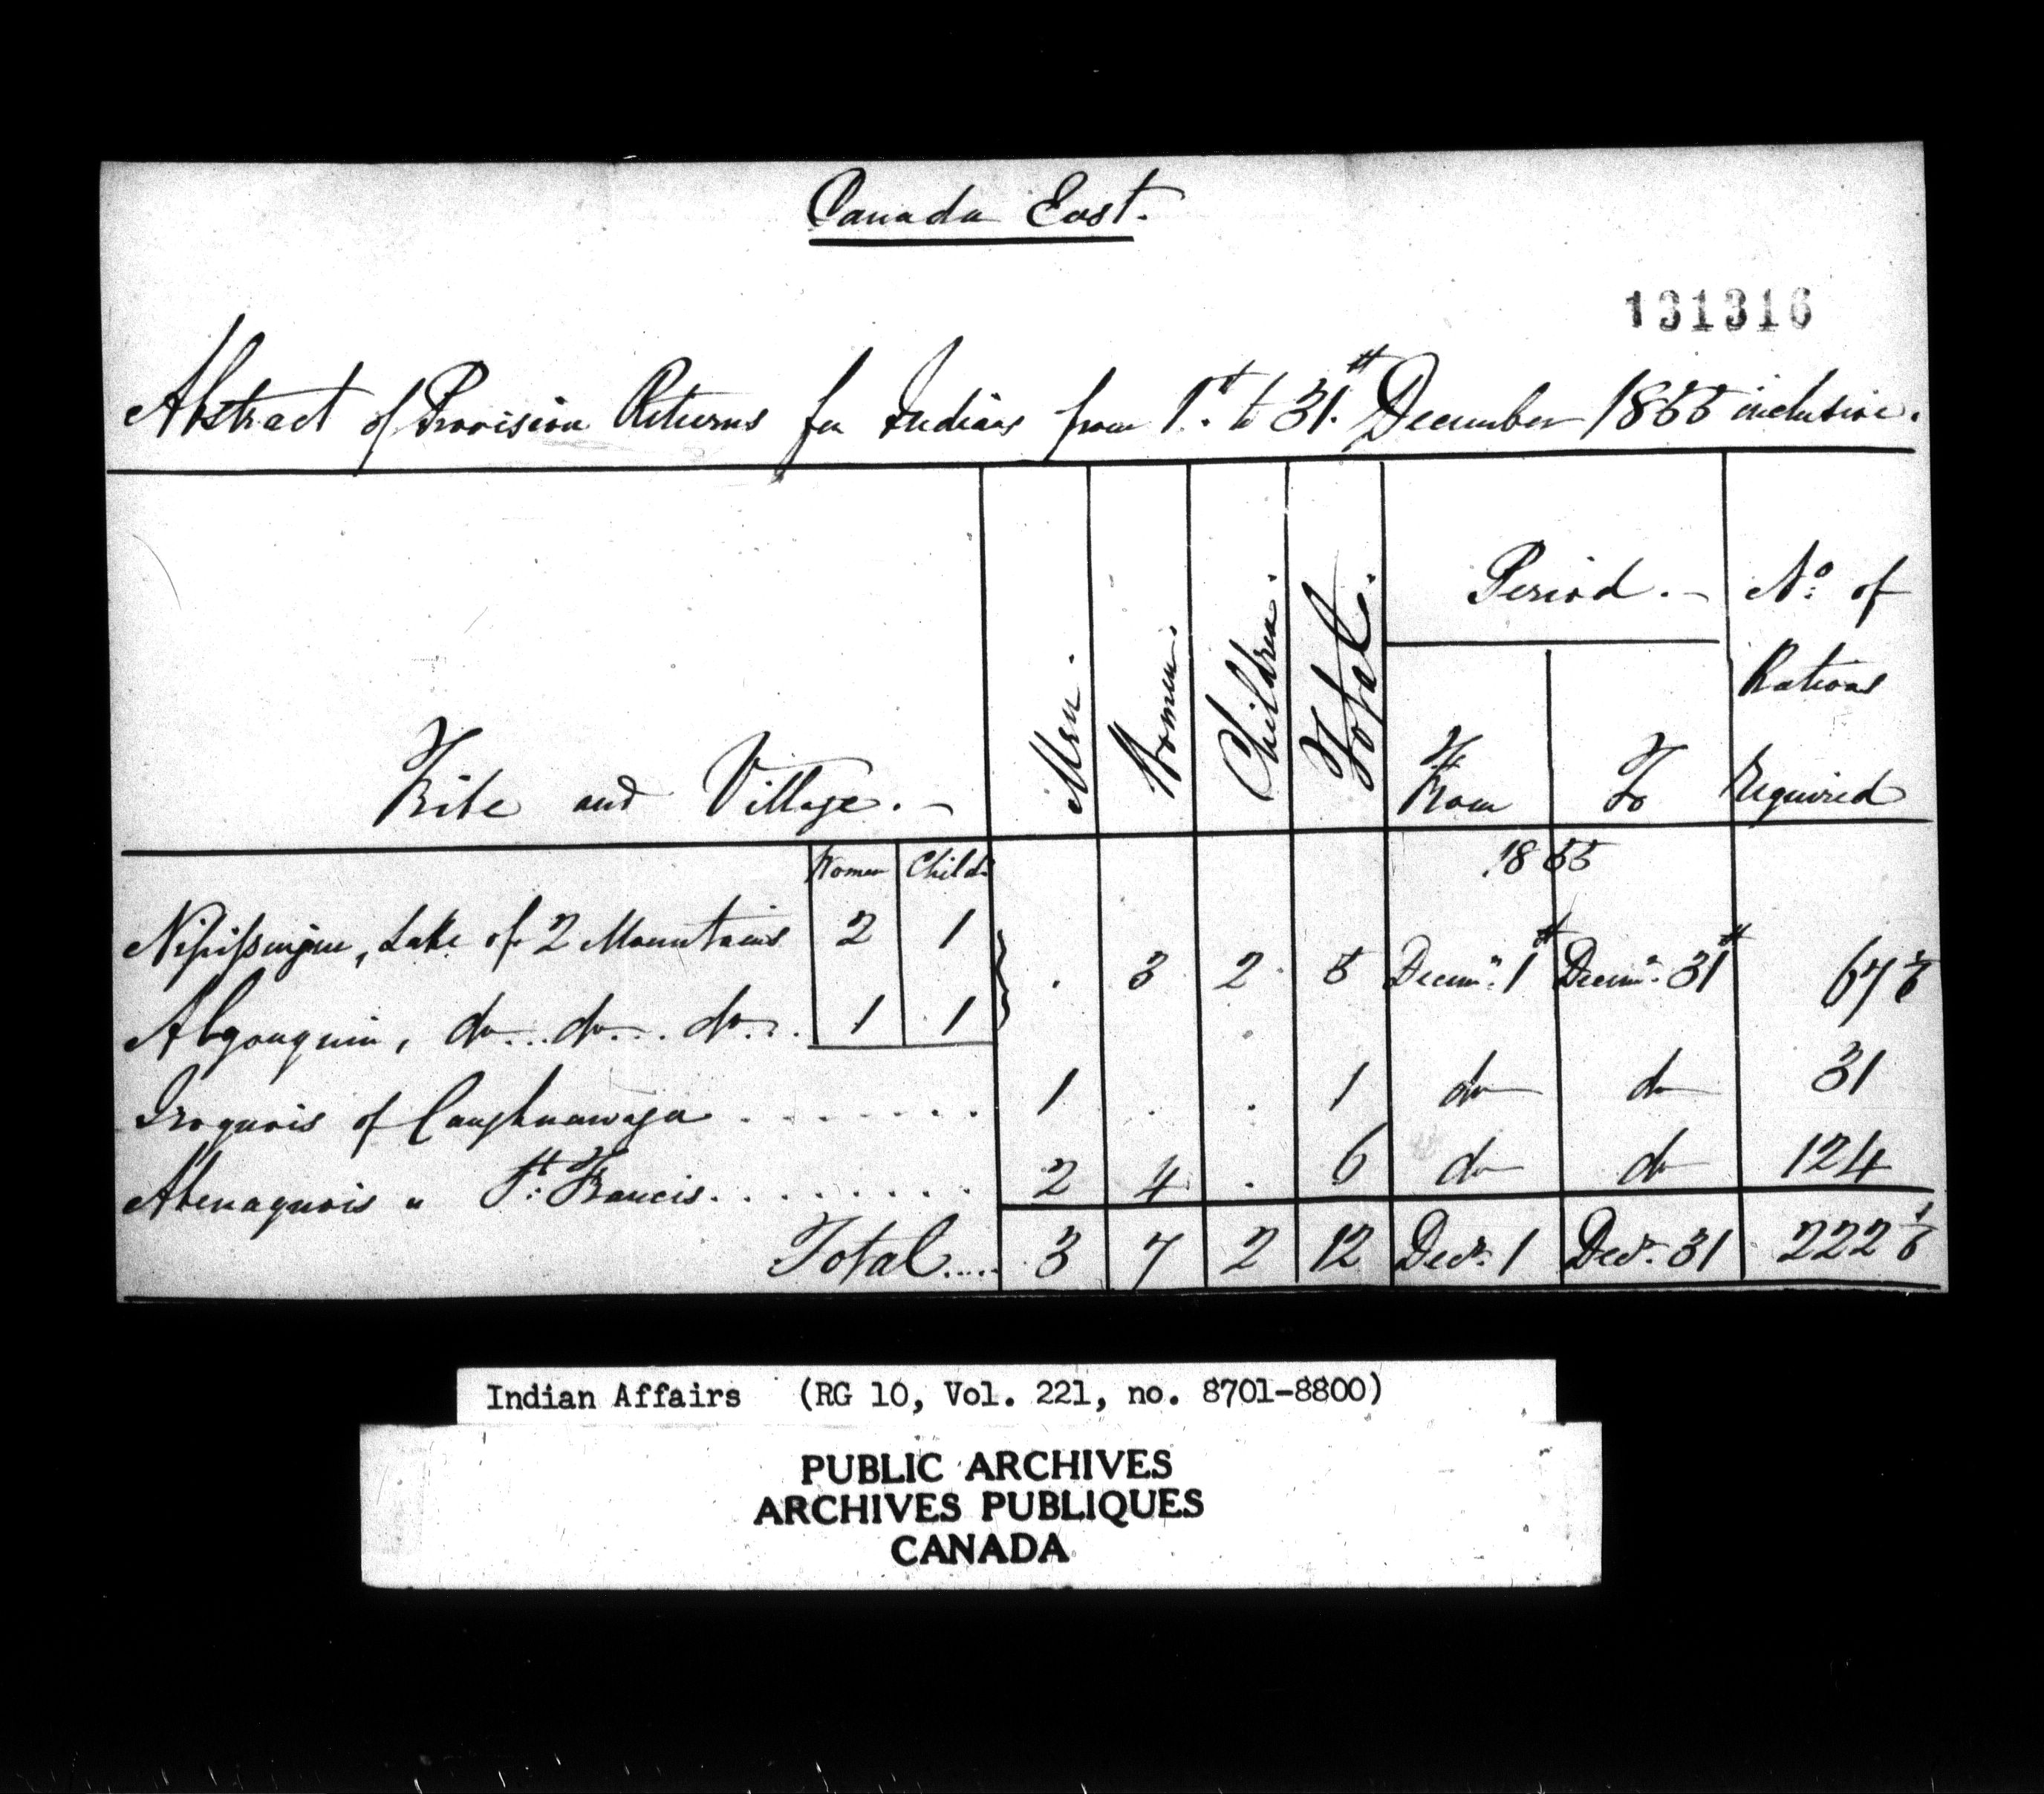 Canada East.
131316
Abstract of Provision Returns for Indians from 1st to 31st December 1855 inclusive.
Tribe and Village. Men. Women. Children. Total. Period. No. of Rations Required
From To
Women Child. 1855
Nipissingue, Lake of 2 Mountains 2 1
. 3 2 5 Decemr. 1st Decemr. 31st 67 1/6
Algonquin, do... do... do... 1 1
Iroquois of Caughnawaga . . . . . . . 1 . . 1 do do 31
Abenaquois " St. Francis. . . . . . . . . 2 4 . 6 do do 124
Total..... 3 7 2 12 Decr. 1 Decr. 31 222 1/6
Indian Affairs (RG 10, Vol. 221, no. 8701-8800)
PUBLIC ARCHIVES
ARCHIVES PUBLIQUES
CANADA